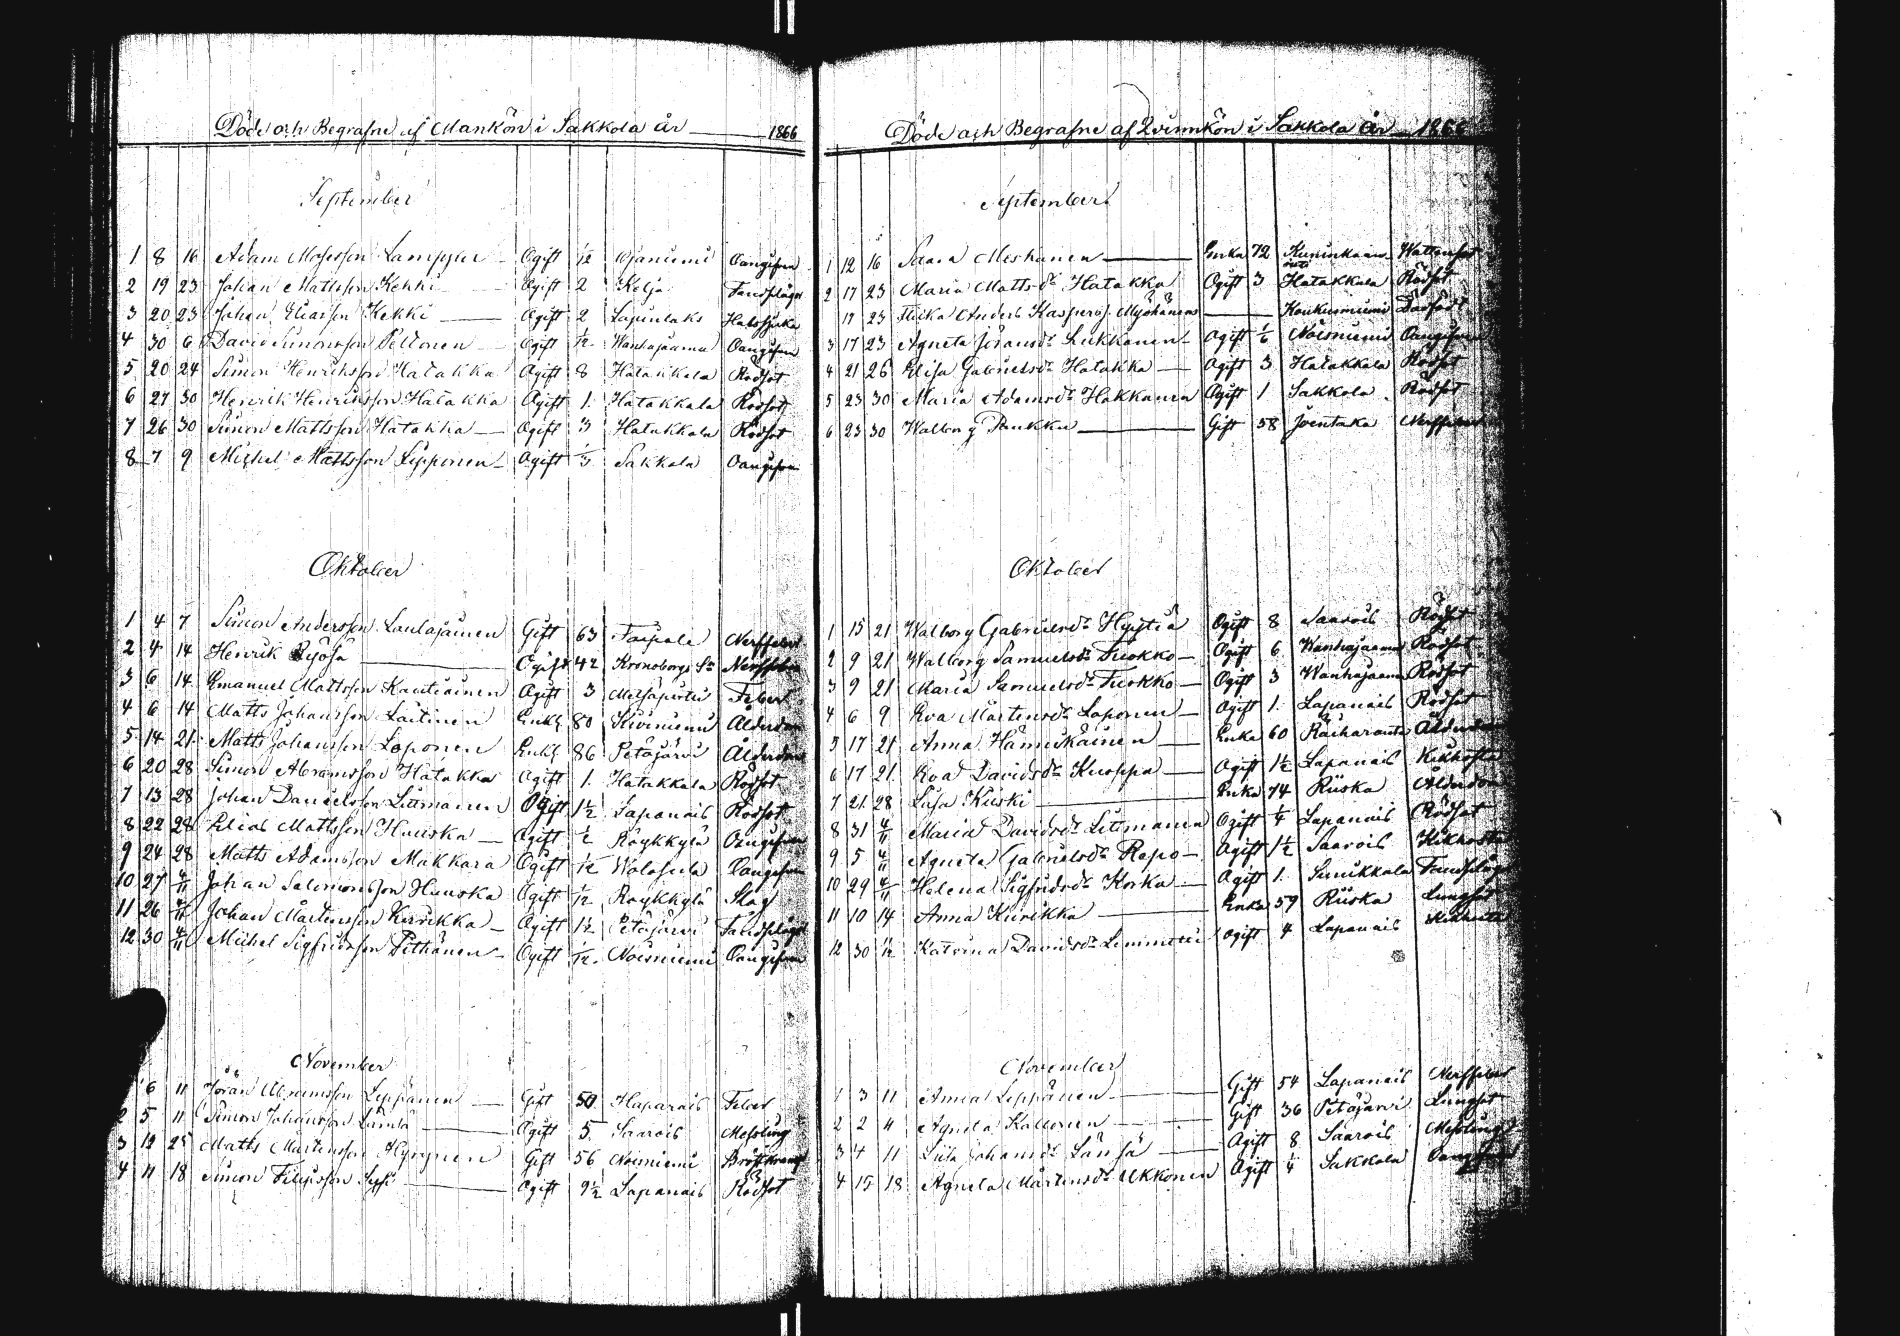 Döde och Begrafne af Mankön i Sakkola år 1866
September
1 8 16 Adam Mosesson Ogift 1/12 Oangifven
2 19 23 Johan Mattsson Kekki Ogift 2 Kelja Landsplåga
3 20 23 Johan Eliasson Kekki Ogift 2 Lapinlaks Halssjuka
4 30 6 David Simonsson Peltonen Ogift 1/12 Wanhajaama Oangifven
5 20 24 Simon Henriksson Hatakka Ogift 8 Hatakkala Rödsot
6 27 30 Henrik Henriksson Hatakka Ogift 1 Hatakkala Rödsot
7 26 30 Simon Mattsson Hatakka Ogift 3 Hatakkala Rödsot
8 7 9 Michel Mattsson Lipponen Ogift Sakkola Oangifven
Oktober
1 4 7 Simon Andersson Laulajainen Gift 63 Taipale Nerffeber
2 4 14 Henrik Ogift 42 Kronoborgs Sn Nerffeber
3 6 14 Emanuel Mattsson Kautiainen Ogift 3 Metsäpirtti Feber
4 6 14 Matts Johansson Laitinen Enkl 80 Kiviniemi Ålderdom
5 14 21 Matts Johansson Loponen Enkl 86 Petäjärvi Ålderdom
6 20 28 Simon Abramsson Hatakka Ogift 1 Hatakkala Rödsot
7 13 28 Johan Danielsson Litmanen Ogift 1½ Lapanais Rödsot
8 22 28 Elias Mattsson Huuska Ogift ½ Röykkylä Oangifven
9 24 28 Matts Adamsson Mäkkärä Ogift 1/12 Oangifven
10 27 4/11 Johan Salomonsson Huuska Ogift 1/12 Röykkylä Slag
11 26 4/11 Johan Mårtensson Kiurikka Ogift 1½ Petäjärvi Landsplåga
12 30 4/11 Michel Sigfridsson Pitkänen Ogift 1/12 Noisniemi Oangifven
November
6 11 Jöran Abramsson Leppänen Gift 50 Haparais Feber
2 5 11 Simon Johansson Ogift 5 Saarois Messling
3 12 25 Matts Mårtensson Hyvönen Gift 56 Noisniemi Bröstkramp
4 11 18 Simon Filipsson Ogift 9½ Lapanais Rödsot
Döde och Begrafne af Qvinnkön i Sakkola år 1866
September
1 12 16 Saara Meskanen Enka 72 Wattensot
2 17 23 Maria Matts dr Hatakka Ogift 3 Hatakkala Rödsot
17 23 Flicka Anders Kaspersd Myöhänens Koukunniemi Dödfödt
3 17 23 Agneta Jöransdr Sukkanen Ogift 1/6 Noisniemi Oangifven
4 21 26 Elisa Gabrielsdr Hatakka Ogift 3 Hatakkala Rödsot
5 23 30 Maria Adamsdr Hakkanen Ogift 1 Sakkola Rödsot
6 23 30 Walborg Paukku Gift 58 Joentaka Nerffeber
Oktober
1 15 21 Walborg Gabrielsdr Hyytiä Ogift 8 Saarois Rödsot
2 9 21 Walborg Samuelsdr Tuokko Ogift 6 Wanhajaama Rödsot
3 9 21 Maria Samuelsdr Tuokko Ogift 3 Wanhajaama Rödsot
4 6 9 Eva Mårtensdr Loponen Ogift 1 Lapanais Rödsot
5 17 21 Anna Hännikäinen Enka 60 Räiharanta Ålderdom
6 17 21 Eva Davidsdr Kuoppa Ogift 1½ Lapanais Kikhosta
7 21 28 Liisa Kiiski Enka 74 Riiska Ålderdom
8 31 4/11 Maria Davidsdr Litmanen Ogift ¼ Lapanais Rödsot
9 5 4/11 Agneta Gabrielsdr Repo Ogift 1½ Saarois Kikhosta
10 29 4/11 Helena Sigfridsdr Korka Ogift 1 Landsplåga
11 10 14 Anna Kiurikka Enka 59 Riiska Lungsot
12 30 Katrina Davidsdr Lemmetti Ogift 4 Lapanais Kikhosta
November
1 3 11 Anna Leppänen Gift 54 Lapanais Nerffeber
2 2 4 Agneta Kallonen Gift 36 Petäjärvi Lungsot
3 4 11 Liisa Johansdr Ogift 8 Saarois Messling
4 15 18 Agneta Mårtensdr Ukkonen Ogift ¼ Sakkola Oangifven